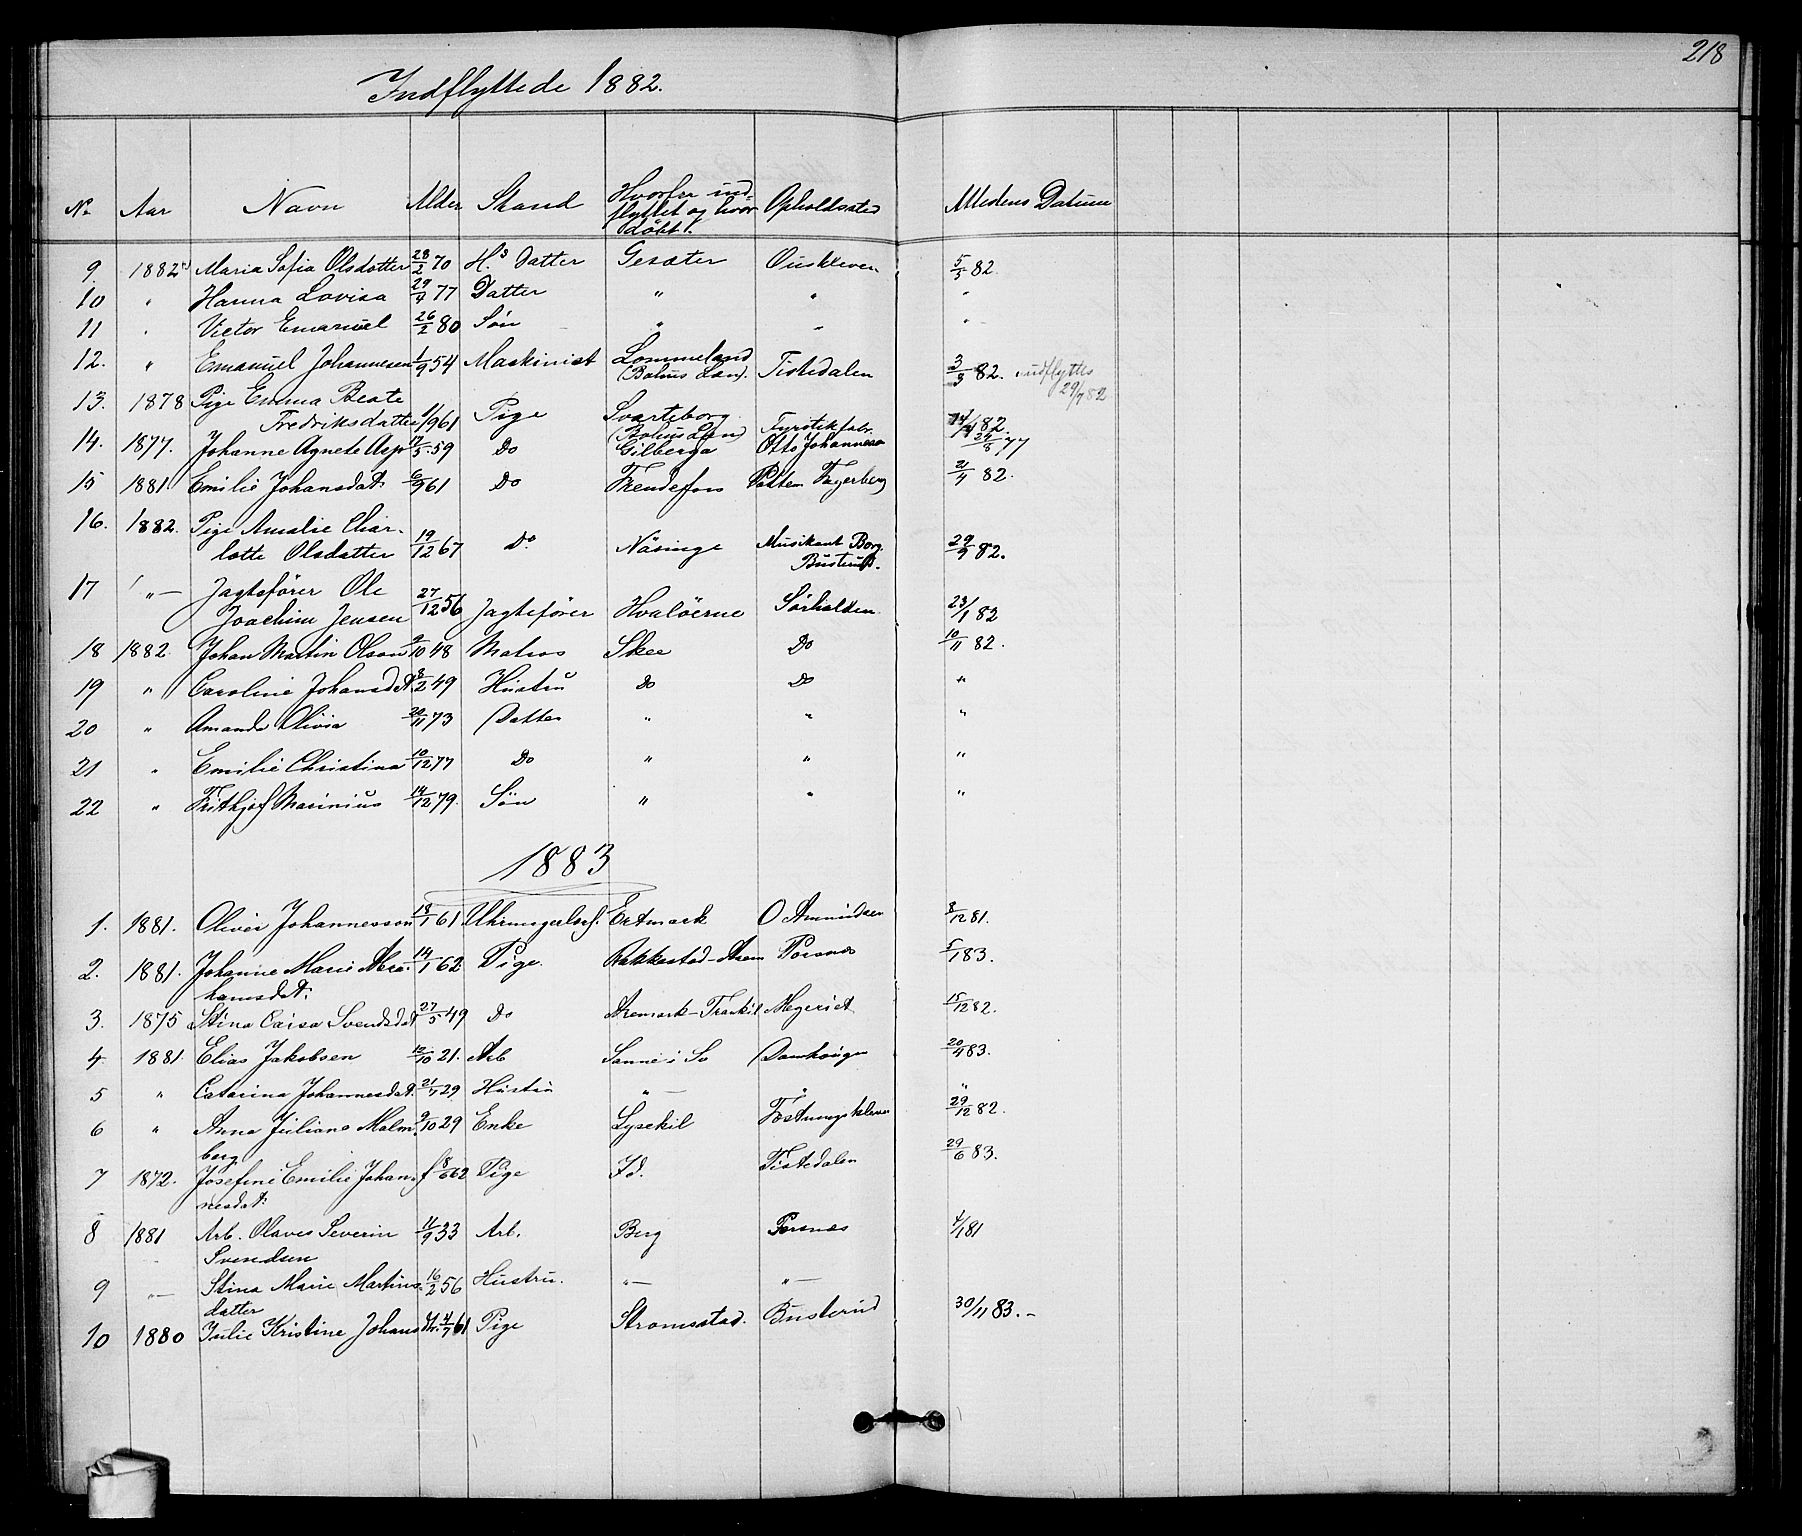 218
Indflyttede 1882.
No Aar Navn Alder Stand Hvorfra ind- flyttet og hvor døbt. Opholdssted Attestens Datum
9. 1882 Maria Sofia Olsdatter 28/2 70 Hs Datter Gesæter Ouskleven 5/5 82.
10 " Hanna Lovisa 29/7 77 Datter " " "
11 " Victor Emanuel 26/2 80 Søn " " "
12. " Emanuel Johannesen 1/9 54 Maskinist Lommeland (Bahus Län). Tistedalen 3/3 82. udflyttet 29/7 82
13. 1878 Pige Emma Beate
Fredriksdatter 1/9 61 Pige Svarteborg (Bahus Län) Fyrstikfabr. 14/4 82.
14. 1877. Johanne Agnete Asp 12/5 59 Do Gilberga Otto Johannesen 24/5 77
15 1881 Emilie Johansdat. 6/9 61 Do Frendefors Fagerberg 21/4 82.
16. 1882. Pige Amalie Char-
lotte Olsdatter 19/12 67 Do Näsinge Musikant Borg Busterud. 29/9 82.
17 "— Jagtefører Ole
Joachim Jensen 27/12 56 Jagtefører Hvaløerne Sørhalden 23/1 82
18 1882. Johan Martin Olson 9/10 48 Matros Skee Do 10/11 82.
19 " Caroline Johansdat. 8/2 49 Hustru do do "
20 " Amanda Olivia 20/11 73 Datter " " "
21 " Emilie Christina 10/12 77 Do " " "
22 " Frithjof Marinius 14/12 79. Søn " " "
1883
1. 1881. Oliver Johannesson 18/1 61 Ertmark O Amundsen 8/12 81.
2. 1881. Johanne Marie Abra-
hamsdat. 14/1 62 Pige. Rakkestad- Porsnæs 5/1 83.
3. 1875 Stina Caisa Svendsdat 27/5 49 Do Aremark- Meieriet 15/12 82.
4 1881. Elias Jakobsen 12/10 21. Arb Sanne i Sv Damhaugen 20/4 83.
5 " Catarina Johannesdat. 21/7 29 Hustru "— " "
6 " Anna Juliane Malm-
berg 9/10 29 Enke Lysekil Fæstningskleven 29/12 82.
7 1872. Josefine Emilie Johan-
nesdat. f 8/6 62 Pige Id. Tistedalen 29/6 83.
8 1881 Arb. Olaves Severin
Svendsen 11/9 33 Arb. Berg Porsnæs 4/1 81
9 "— Stina Marie Martins-
datter 16/2 56 Hustru. "— "—
10 1880 Julie Kristine Johansdtr. 4/7 61 Pige Stromsstad. Busterud 30/11 83.-